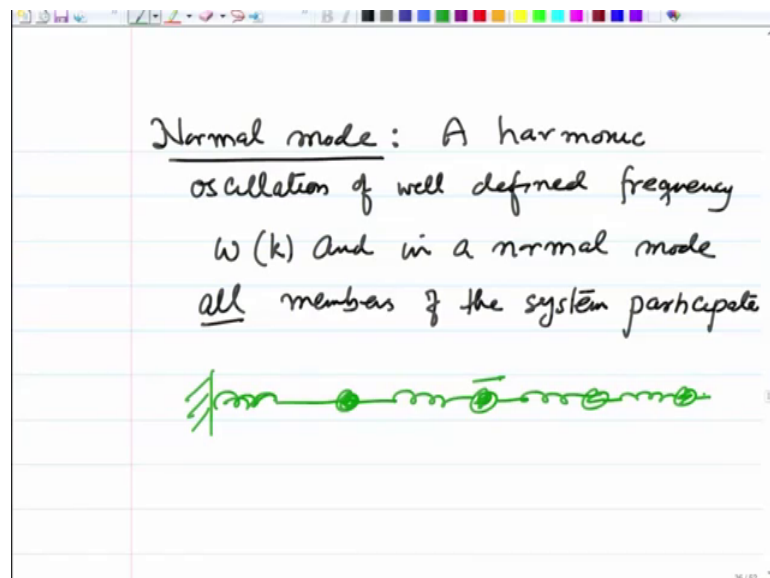 Normal mode: A harmonic
oscillation of well defined frequency
ω(k) And in a normal mode
all members of the system participate